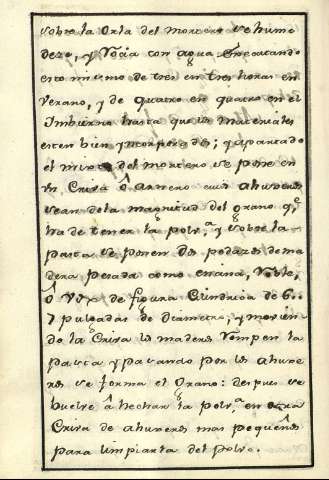 sobre la Orla del mortero se hume
deze, y Rocia con agua Executando
esto mismo de tres en tres horas en
Verano, y de quatro en quatro en el
Imbierno hasta que los materiales
esten bien yncorporados; y apartado
el mixto del mortero se pone en
un Criva ô Arnero cuios ahujeros
sean dela magnitud del Grano q.ᵉ
ha de tener la polv.ª y sobre la
pasta se ponen dos pedazos de ma
dera pesada como enzina, Roble,
ô de figura Cilindrica de 6..
7 pulgadas de Diametro, y movien
do la Criva los maderos rompen la
pasta y pasando por los ahuje
ros se forma el Grano: despues se
buelve â hechar la polv.ª en otra
Criva de ahujeros mas pequeños
para limpiarla del polvo.